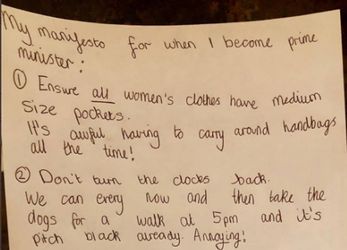 My manifesto for when I become prime
minister:
① Ensure all women's clothes have medium
size pockets.
It's awful having to carry around handbags
all the time!
② Don't turn the clocks back.
We can every now and then take the
dogs for a walk at 5pm and it's
pitch black already. Annoying!